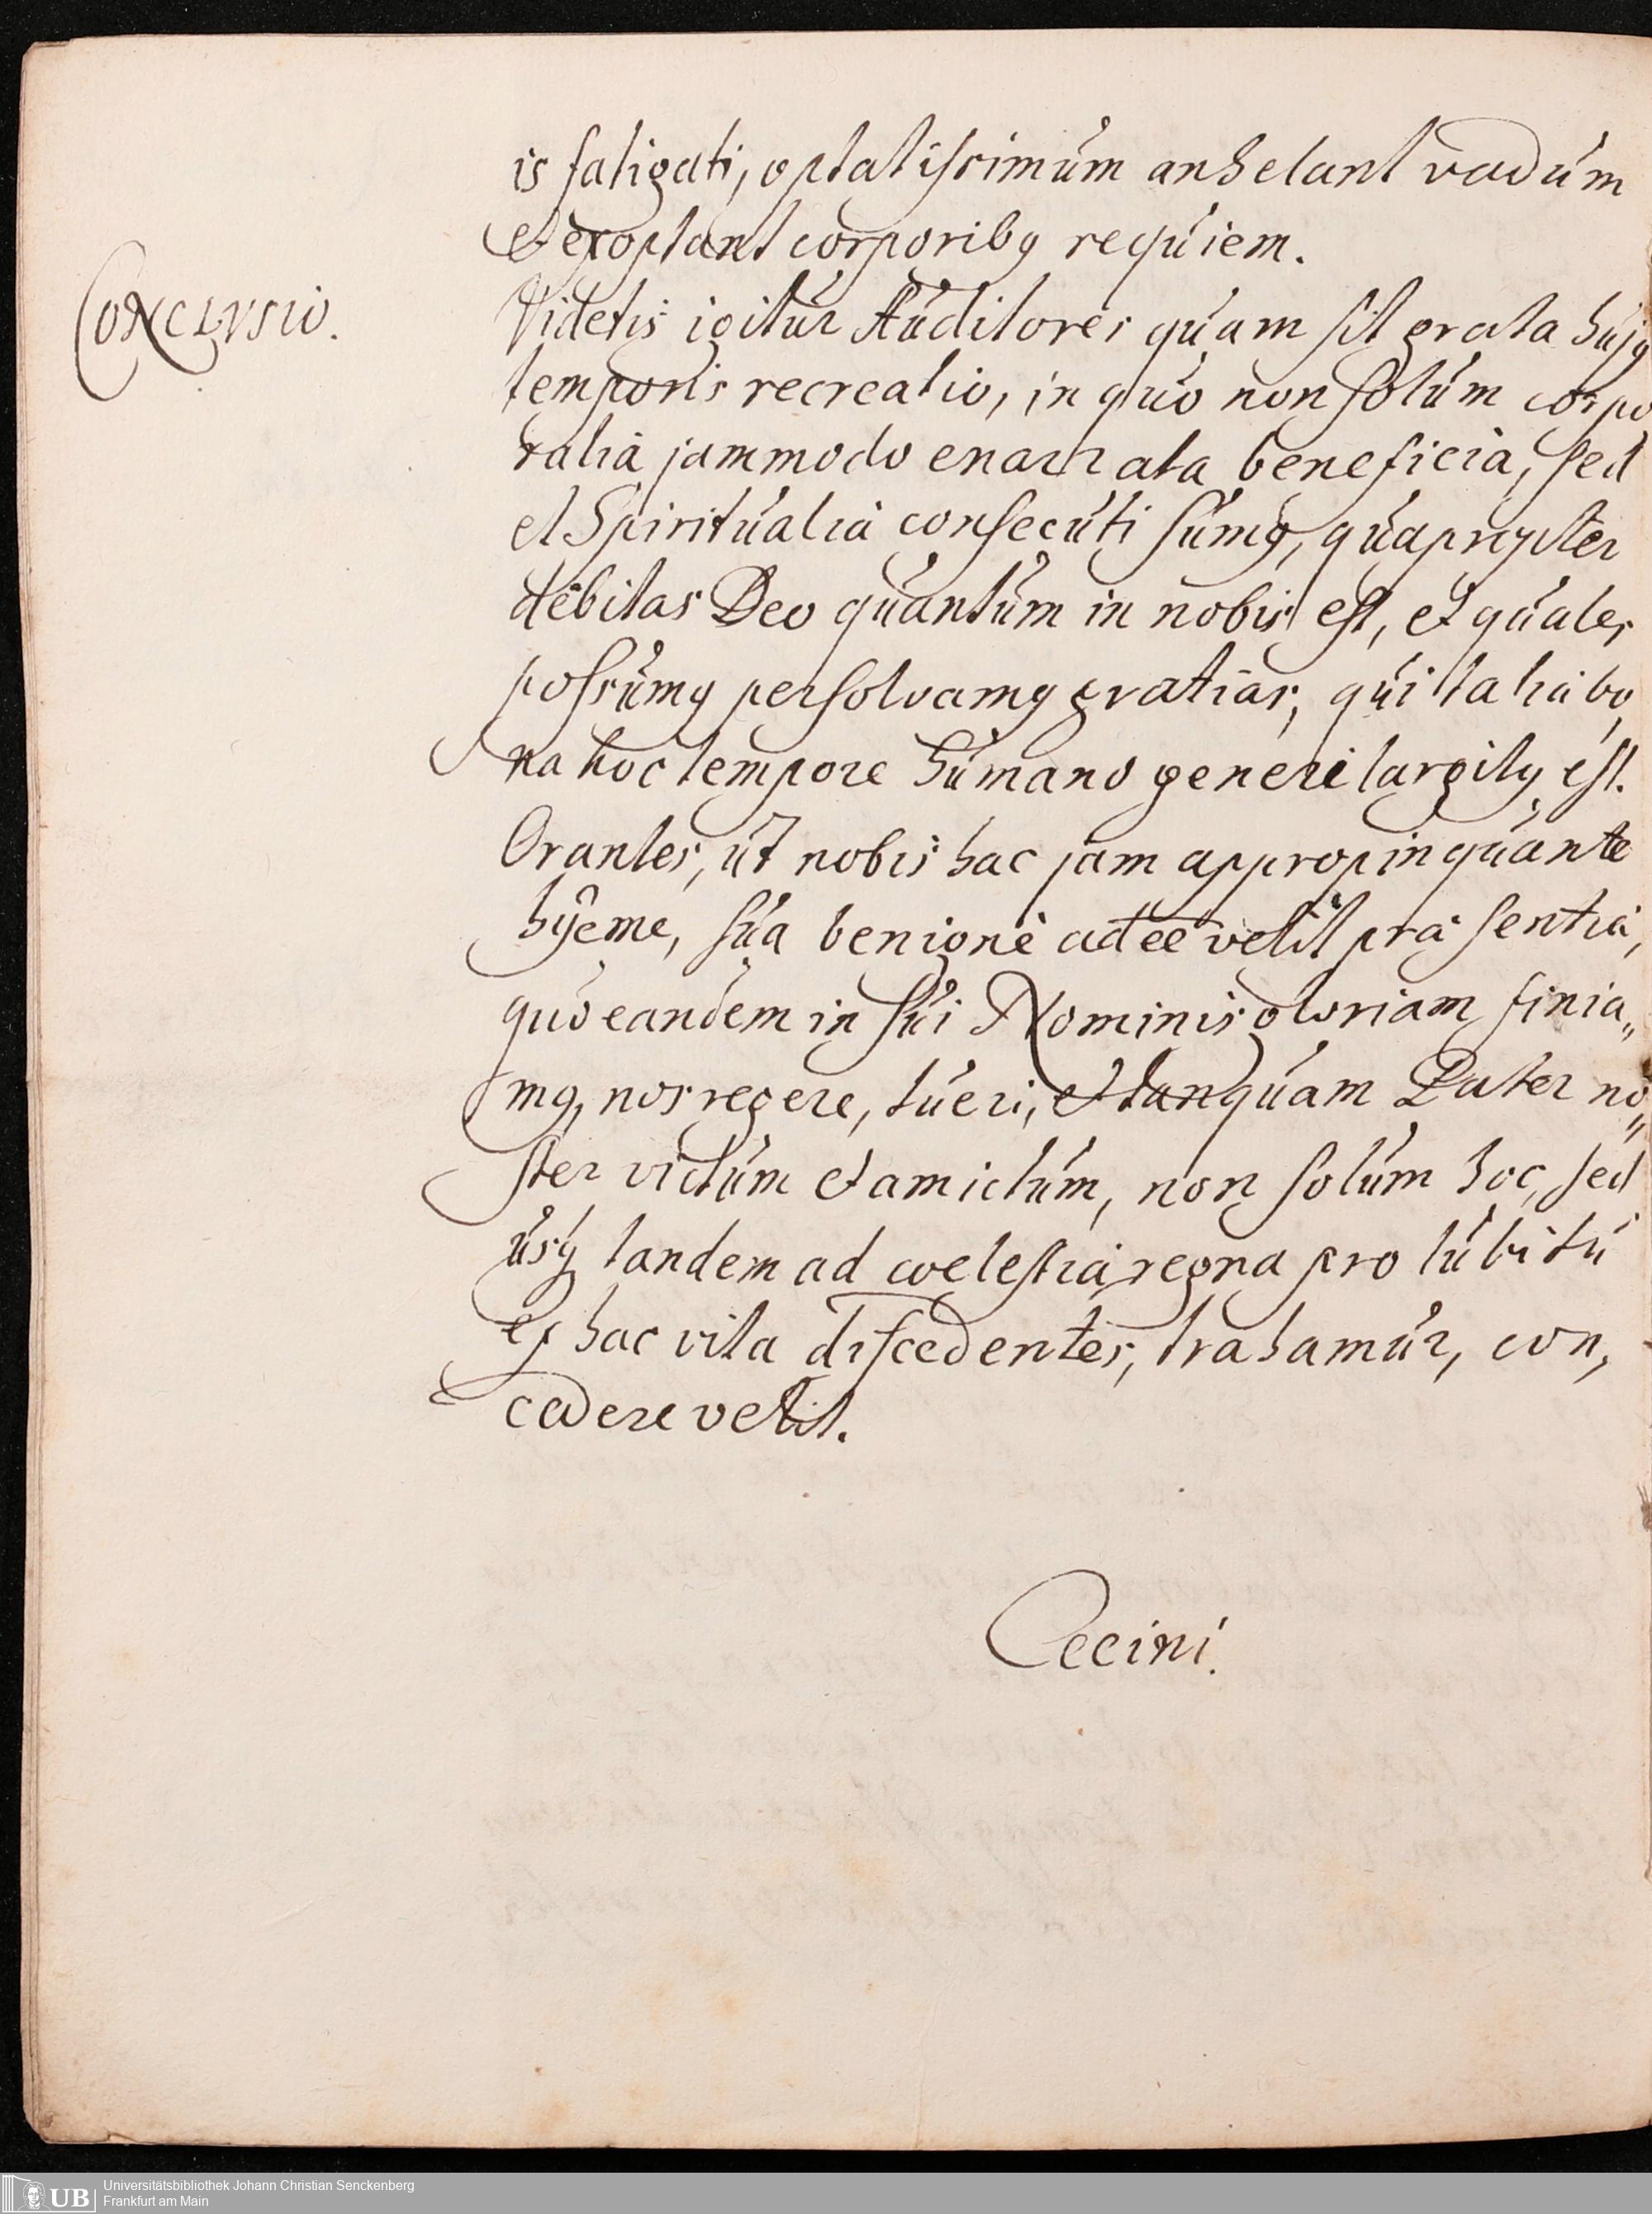 is fatigati, optatissimùm anhelant vadùm
et exoptant corporibꝰ reqùiem.
Conclvsio.
Videtis igitùr Aùditores qùam sit grata hùjꝰ
temporis recreatio, in qùo non solùm corpo
ralia jammodo enarrata beneficia, sed
et Spiritùalia consecùti sùmꝰ, qùapropter
debitas Deo qùantùm in nobis est, et qùales
possùmꝰ persolvamꝰ gratias, qùi talia bo,
na hoc tempore hùmano generi largitꝰ est.
Orantes, ùt nobis hac jam appropinqùante
hÿeme, sùa benignè adeê velit præsentia,
qùo eandem in sùi Nominis gloriam finia„
mꝰ, nos regere, tùeri, et tanqùam Pater no„
ster victùm et amictùm, non solùm hoc, sed
ùsqꝫ tandem ad coelestia regna pro lùbitù
ex hac vita discedentes, trahamùr, con,
cedere velit.
Cecini.
Universitätsbibliothek Johann Christian Senckenberg
Frankfurt am Main
UB